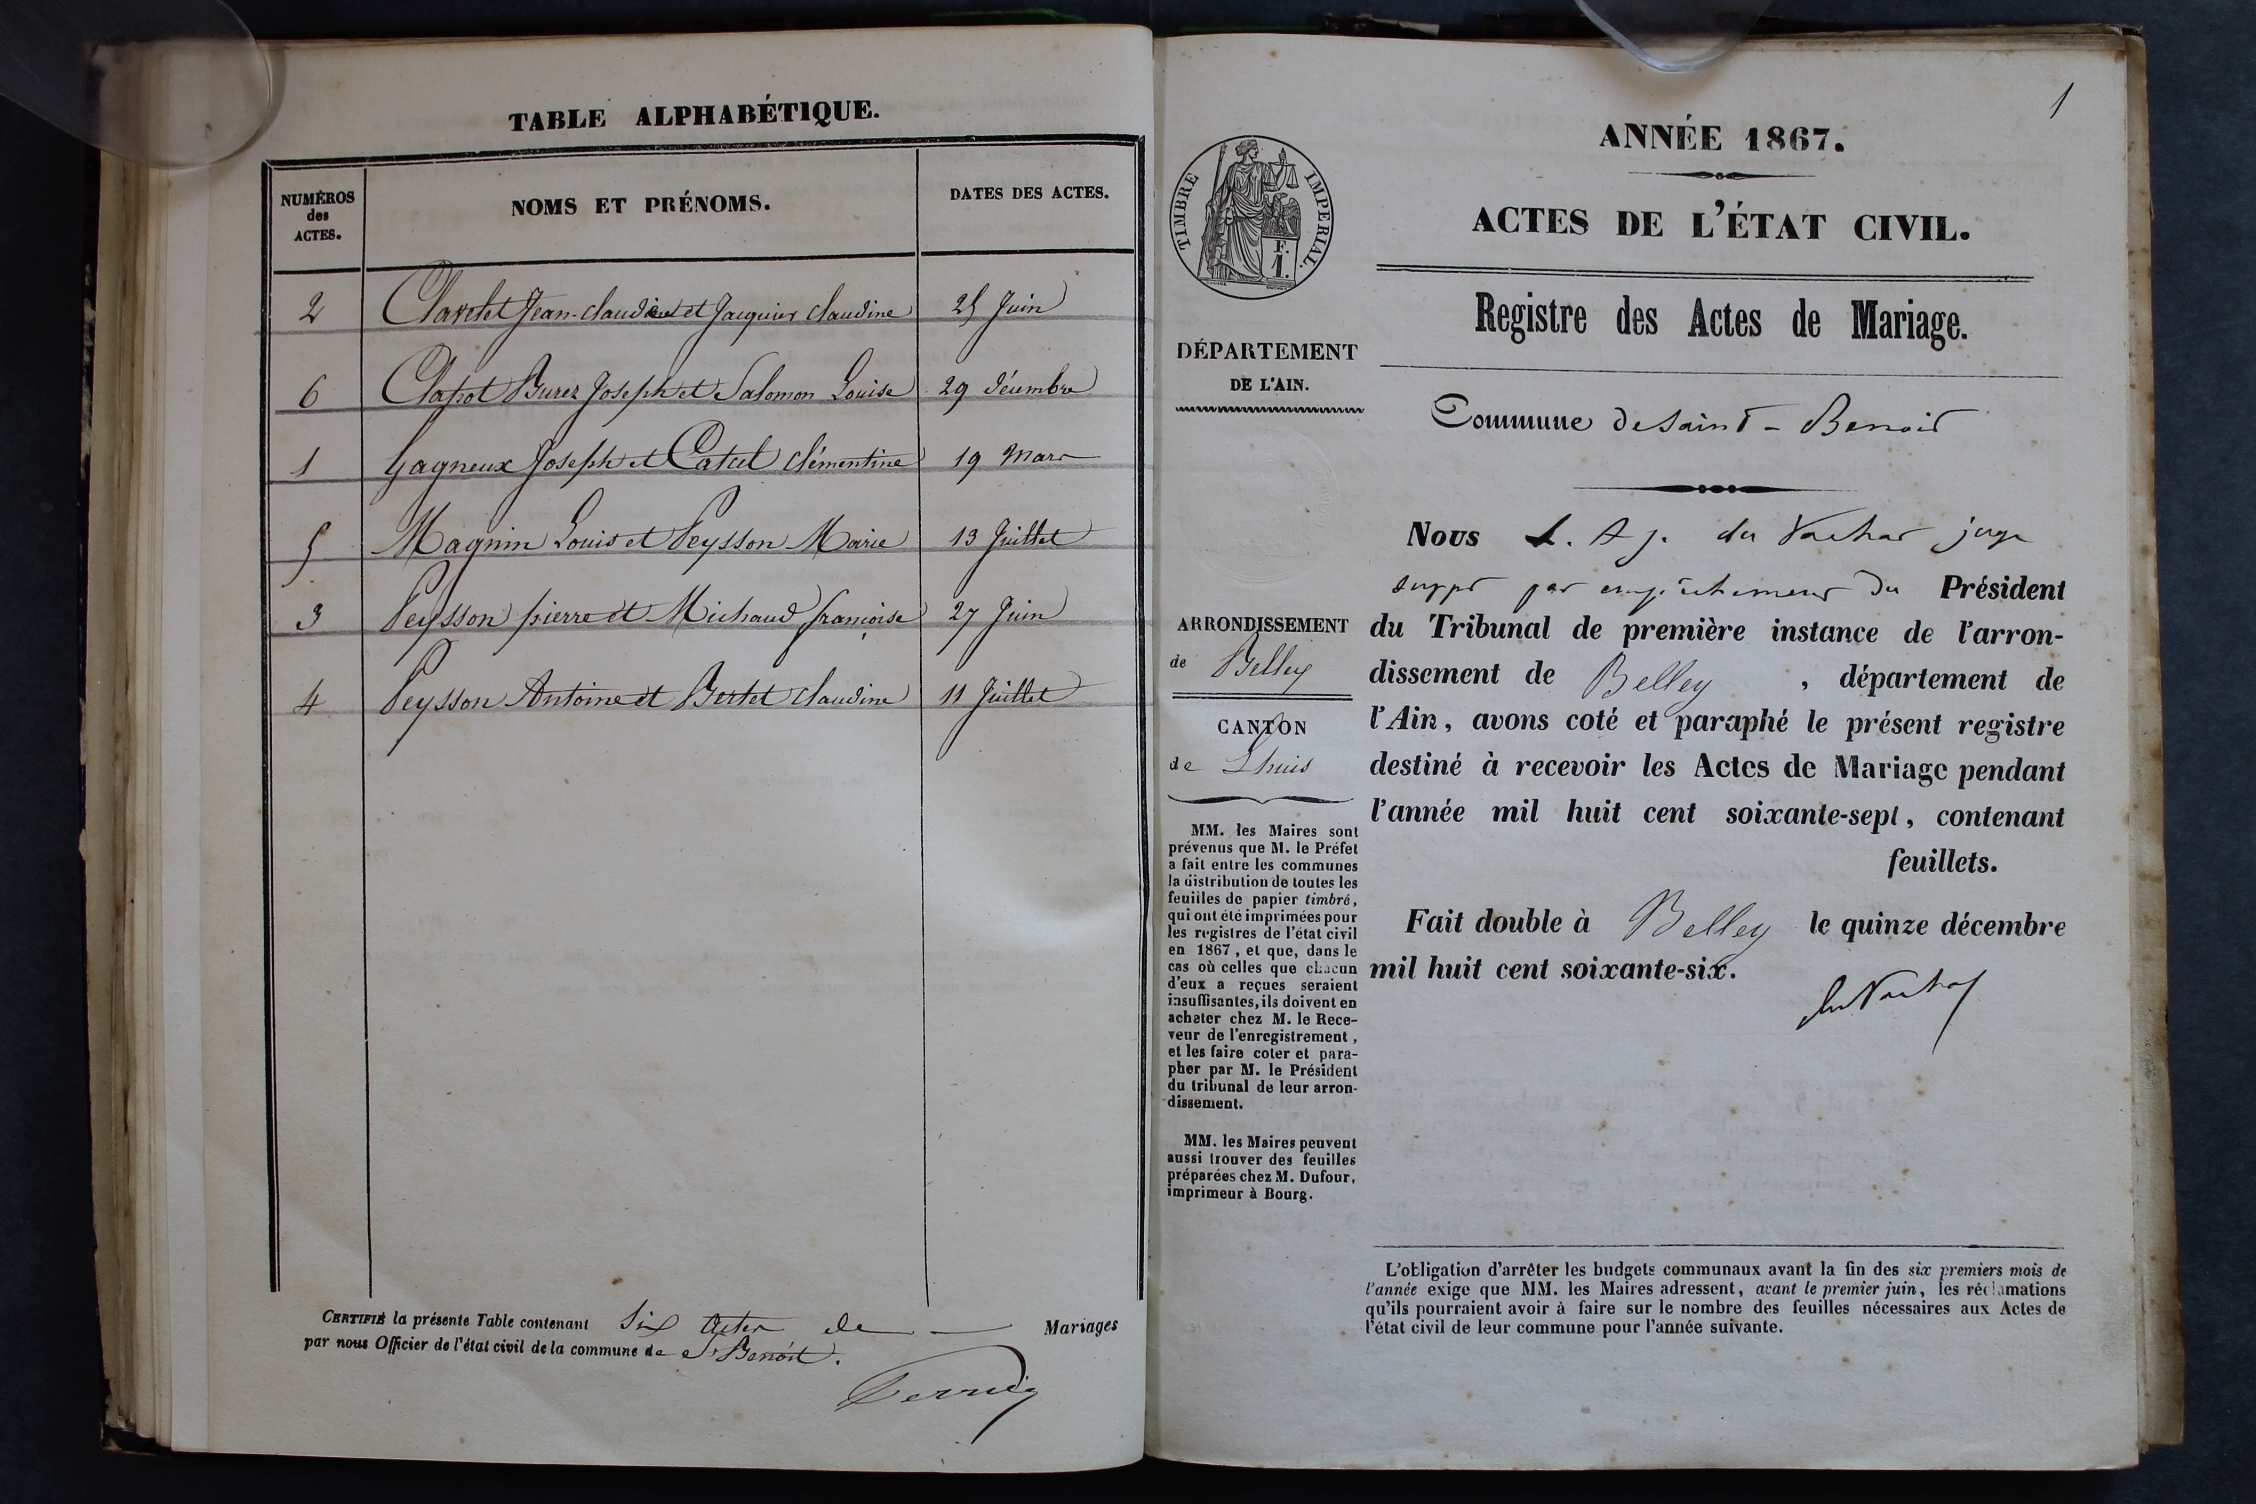 TABLE ALPHABÉTIQUE.
NUMÉROS
des
ACTES.
NOMS ET PRÉNOMS.
DATES DES ACTES.
2 Clavelet Jean-claude et Jacquier claudine 25 Juin
6 Clapot Burez Joseph et Salomon Louise 29 décembre
1 Gagneux Joseph et Catcel clémentine 19 Mars
5 Magnin Louis et Peysson Marie 13 Juillet
3 Peysson pierre et Michaud françoise 27 Juin
4 Peysson Antoine et Bertet claudine 11 Juillet
CERTIFIÉ la présente Table contenant Six Actes de Mariages
par nous Officier de l'état civil de la commune de St Benoit.
1
ANNÉE 1867.
ACTES DE L'ÉTAT CIVIL.
Registre des Actes de Mariage.
TIMBRE IMPERIAL.
F.
1.
DÉPARTEMENT
DE L'AIN.
Commune de Saint-Benoit
ARRONDISSEMENT
de Belley
CANTON
de Lhuis
MM. les Maires sont
prévenus que M. le Préfet
a fait entre les communes
la distribution de toutes les
feuilles de papier timbré,
qui ont été imprimées pour
les registres de l'état civil
en 1867, et que, dans le
cas où celles que chacun
d'eux a reçues seraient
insuffisantes, ils doivent en
acheter chez M. le Rece-
veur de l'enregistrement,
et les faire coter et para-
pher par M. le Président
du tribunal de leur arron-
dissement.
MM. les Maires peuvent
aussi trouver des feuilles
préparées chez M. Dufour,
imprimeur à Bourg.
Nous L. A J. du Vachat juge
suppt par empêchement du Président
du Tribunal de première instance de l'arron-
dissement de Belley, département de
l'Ain, avons coté et paraphé le présent registre
destiné à recevoir les Actes de Mariage pendant
l'année mil huit cent soixante-sept, contenant
feuillets.
Fait double à Belley le quinze décembre
mil huit cent soixante-six.
du Vachat
L'obligation d'arrêter les budgets communaux avant la fin des six premiers mois de
l'année exige que MM. les Maires adressent, avant le premier juin, les réclamations
qu'ils pourraient avoir à faire sur le nombre des feuilles nécessaires aux Actes de
l'état civil de leur commune pour l'année suivante.